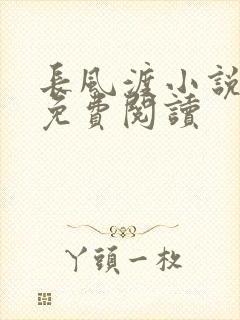 長風渡小說
免費閱讀
丫頭一枚